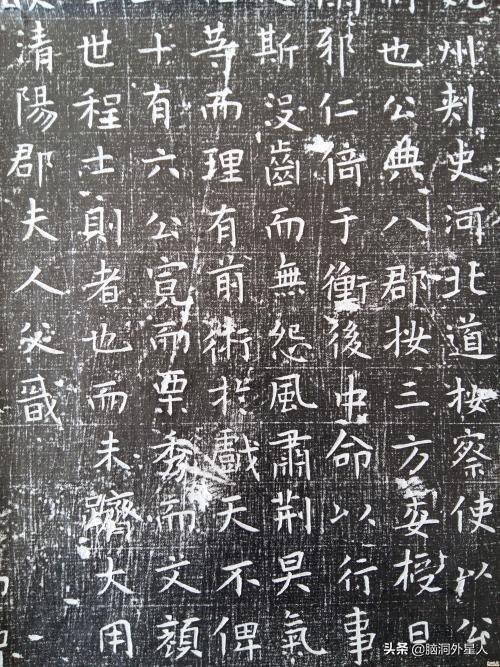 州刺史河北道按察使以公
也公典八郡按三方委授
邪仁倍于衡後中命以行事
斯没齒而無怨風肅荆吴氣
等而理有前術於戲天不俾
十有六公寬而栗秀而文顔
世程士則者也而未躋大用
清陽郡夫人父戩
头条 @脑洞外星人